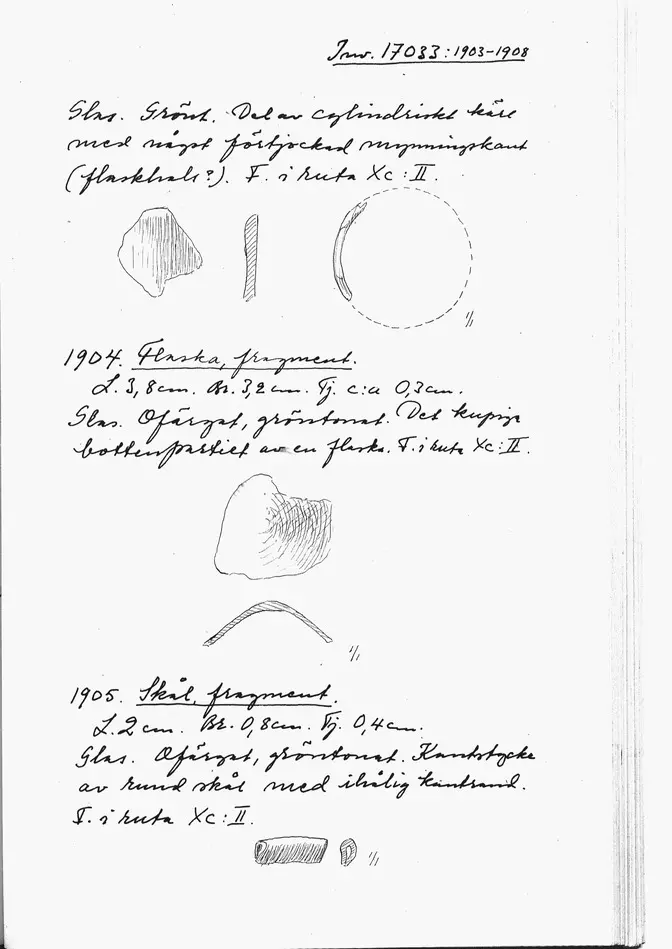 Inv. 17033:1903-1908
Glas. Grönt. Del av cylindriskt kärl
med något förtjockad mynningskant
(flaskhals?). F. i ruta Xc:II.
1/1
1904. Flaska, fragment.
L. 3,8cm. Br. 3,2cm. Tj. c:a 0,3cm.
Glas. Ofärgat, gröntonat. Det kupiga
bottenpartiet av en flaska. F. i ruta Xc:II.
1/1
1905. Skål, fragment.
L. 2cm. Br. 0,8cm. Tj. 0,4cm.
Glas. Ofärgat, gröntonat. Kantstycke
av rund skål med ihålig kantrand.
F. i ruta Xc:II.
1/1